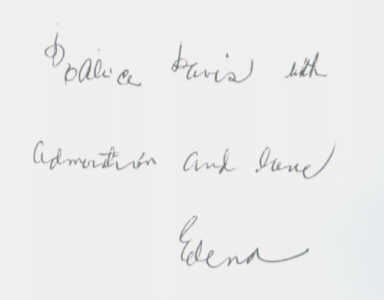 To Alice Davis with
admiration and love
Edena